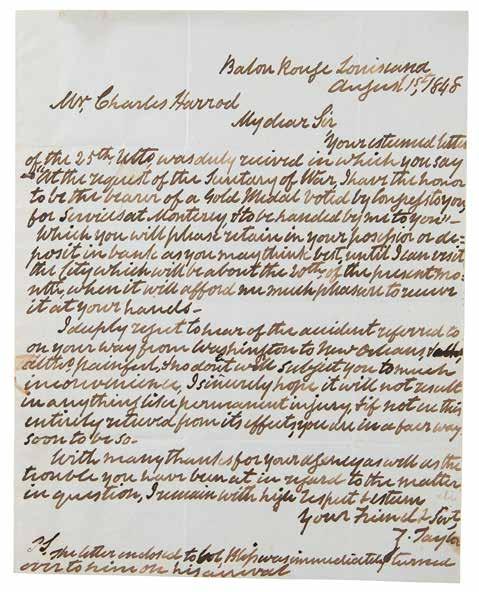 Baton Rouge Louisiana
August 1st, 1848
Mr. Charles Harrod
My dear Sir
Your esteemed letter
of the 25th Ulto, was duly recived in which you say
"At the request of the Secretary of War, I have the honor
to be the bearer of a Gold Medal voted by Congress to you
for Services at Monterey & to be handed by me to you" -
which you will please retain in your possession or de=
posit in bank as you may think best until I can visit
the City which will be about the 20th of the present mo-
nth, when it will afford me much pleasure to receive
it at your hands -
I deeply regret to hear of the accident referred to
on your way from Washington to New Orleans
painful, & no dout will subject you to much
inconvenience, I sincerely hope it will not result
in anything like permanent injury & if not in this
entirely releved from its effects, you are in a fair way
soon to be so -
With many thanks for your agency as well as the
trouble you have been at in regard to the matter
in question, I remain with high respect & esteem
Your Friend & Servt,
Z. Taylor
PS The letter enclosed to Col, Bliss was immediately turned
over to him on his arrival